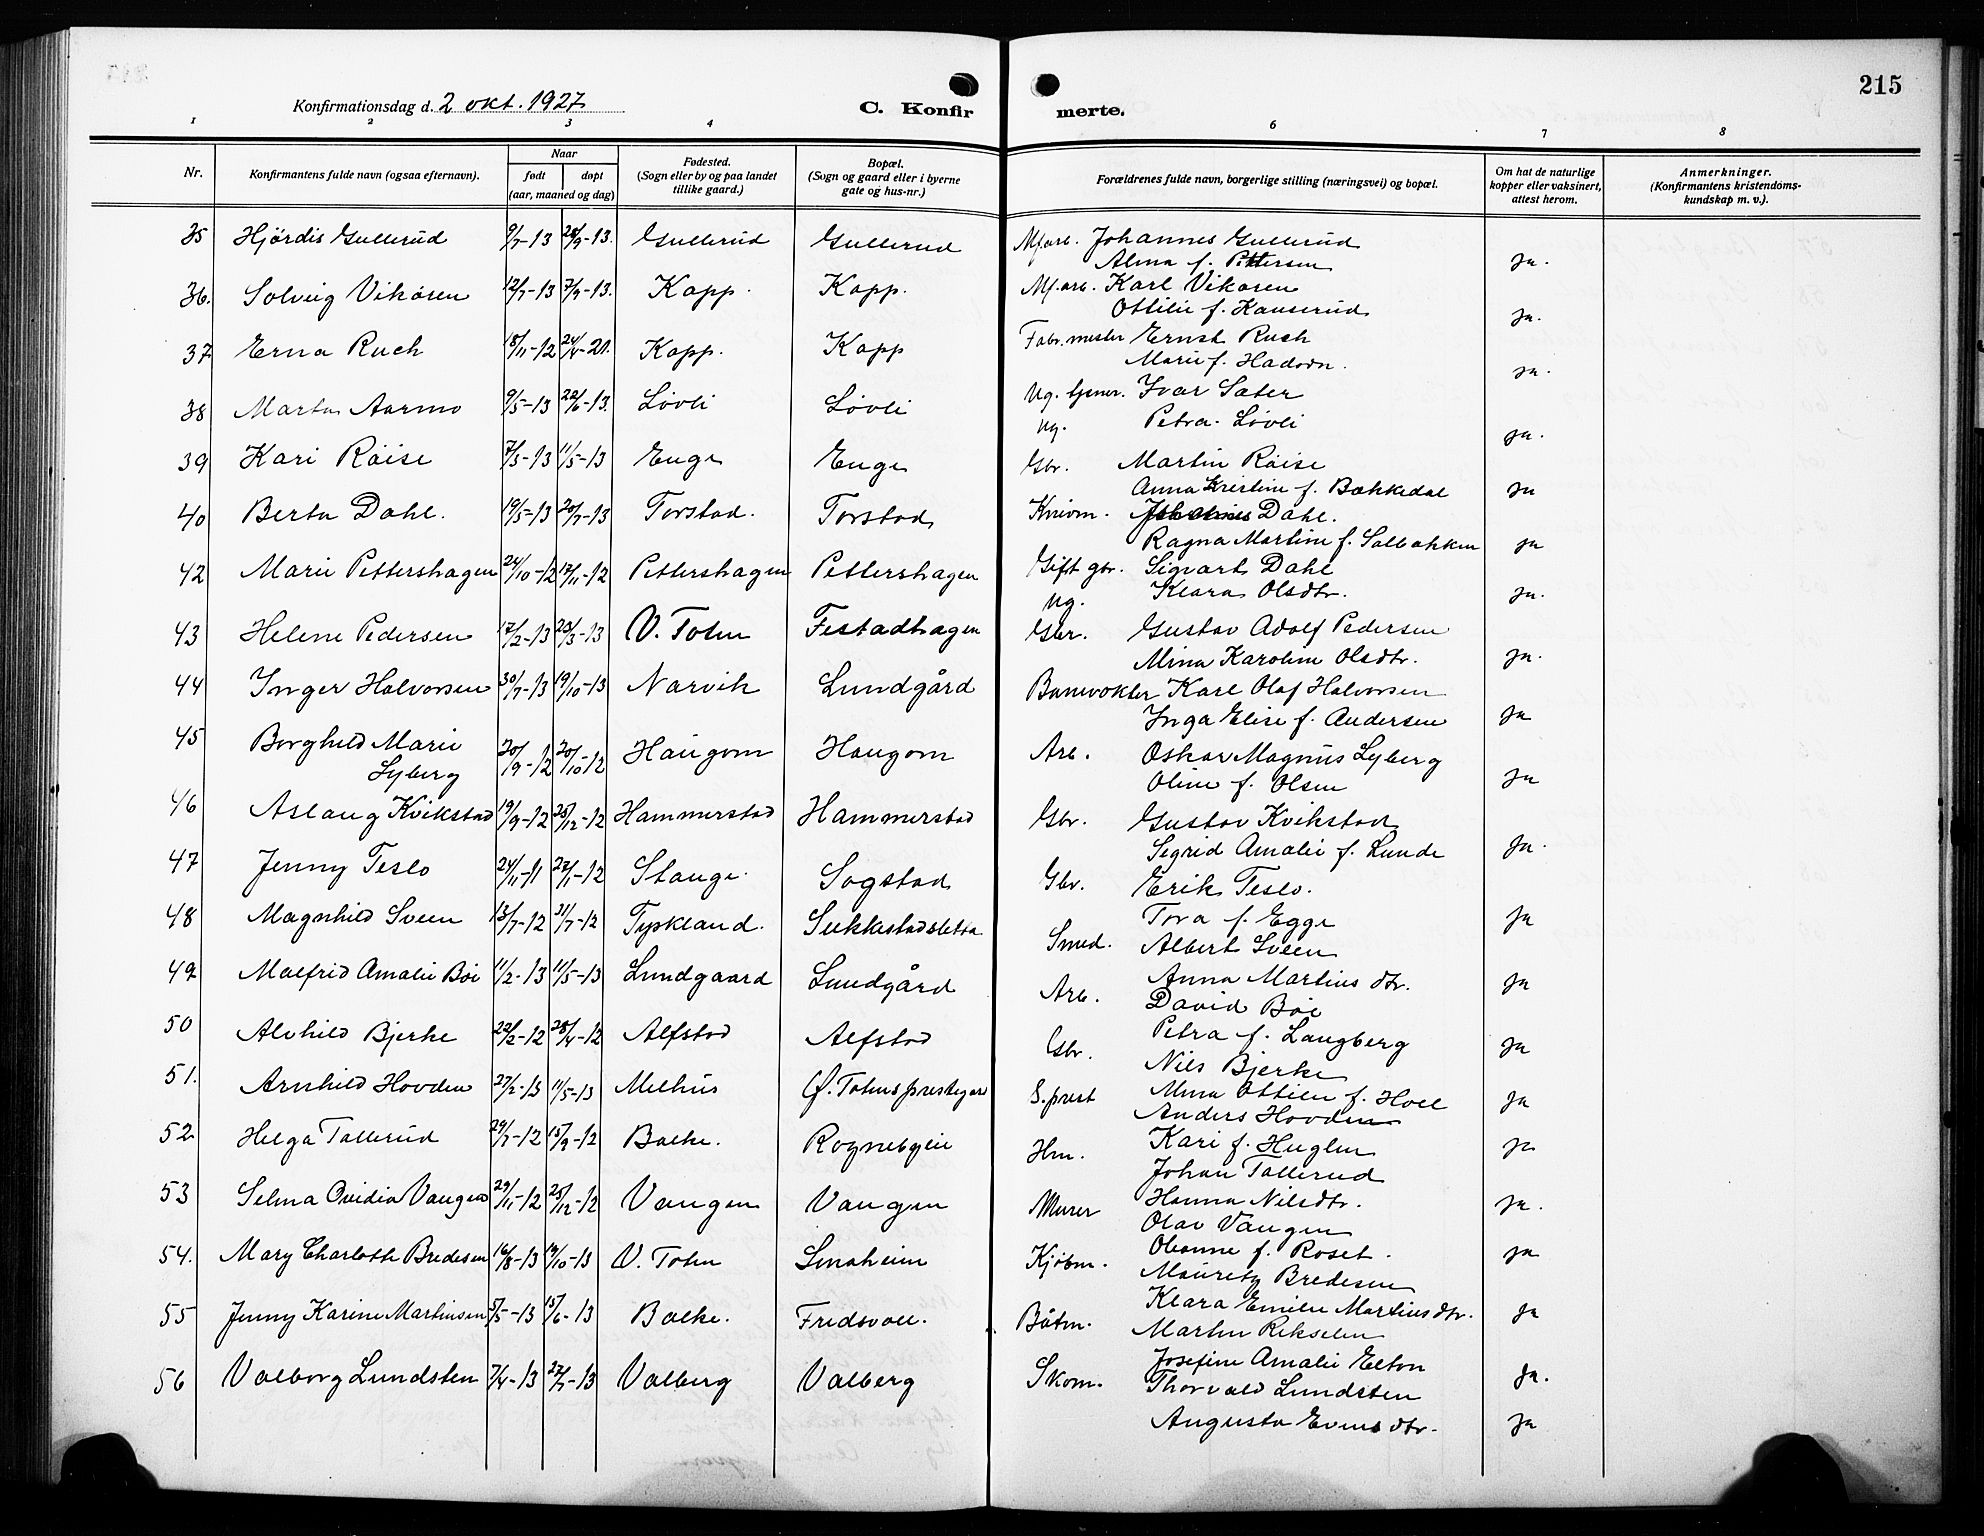 215
Konfirmationsdag d. 2 okt. 1927
C. Konfirmerte.
1 2 3 4 6 7 8
Nr.
Konfirmantens fulde navn (ogsaa efternavn).
Naar
født døpt
(aar, maaned og dag)
Fødested.
(Sogn eller by og paa landet
tillike gaard.)
Bopæl.
(Sogn og gaard eller i byerne
gate og hus-nr.)
Forældrenes fulde navn, borgerlige stilling (næringsvei) og bopæl.
Om hat de naturlige
kopper eller vaksinert,
attest herom.
Anmerkninger.
(Konfirmantens kristendoms-
kundskap m. v.).
35 Hjørdis Gullerud 9/7-13 28/9-13. Gullerud Gullerud M.arb. Johannes Gullerud
Alma f. Pettersen ja.
36. Solveig Vikåsen 12/7-13 7/9-13. Kapp. Kapp. M.arb. Karl Vikåsen
Ottilie f. Kauserud ja.
37 Erna Ruch 18/11-12 24/4-21. Kapp. Kapp Fabr.mester Ernst Ruch
Marie f. Hadorn. ja.
38 Marta Aarmo 9/5-13 22/6-13. Løvli Løvli Ug. tjener. Ivar Sæter
ug. Petra Løvli ja.
39 Kari Røise 7/3-13 11/5-13 Enge Enge Gbr. Martin Røise
Anna Kristine f. Bækkedal ja
40 Berta Dahl. 19/5-13 20/7-13 Torstad. Torstad Dahl.
Ragna Martine f. Solbakken ja
42 Marie Pettershagen 24/10-12 17/11-12 Pettershagen Pettershagen Gift gbr. Sigvart Dahl
ug. Klara Olsdtr. ja.
43 Helene Pedersen 17/2-13 23/3-13 V. Toten Festadhagen Gbr. Gustav Adolf Pedersen
Mina Karoline Olsdtr. ja.
44 Inger Halvorsen 30/7-13 19/10-13 Narvik Lundgård Banevokter Karl Olaf Halvorsen
Inga Elise f. Andersen ja
45 Borghild Marie
Lyberg 20/9-12 20/10-12 Haugom Haugom Arb. Oskar Magnus Lyberg
Oline f. Olsen ja
46 Aslaug Kvikstad 19/9-12 25/12-12 Hammerstad Hammerstad Gbr. Gustav Kvikstad
Sigrid Amalie f. Lunde ja.
47 Jenny Teslo 24/11-11 27/1-12 Stange. Sogstad Gbr. Erik Teslo.
Tora f. Egge ja
48 Magnhild Sveen 13/7-12 31/7-12 Tyskland. Sukkestadsletta Smed. Albert Sveen
Anna Martinsdtr. ja
49 Malfrid Amalie Bøe 11/2-13 11/5-13 Lundgaard Lundgård Arb. David Bøe
Petra f. Langberg ja
50 Alvhild Bjerke 22/2-12 28/4-12 Alfstad Alfstad Gbr. Nils Bjerke
Mina Ottilie f. Hoel ja
51. Arnhild Hovden 27/2-13 11/5-13 Melhus Ø. Totens prestegard S.prest Anders Hovden
Kari f. Huglen ja
52 Helga Tallerud 29/7-12 15/9-12 Balke. Rognebyeie Hm. Johan Tallerud
Hanna Nilsdtr. ja.
53 Selma Ovidia Vangen 29/11-12 25/12-12 Vangen Vangen Murer Olav Vangen
Oleanne f. Roset. ja
54. Mary Charlotte Bredesen 16/8-13 19/10-13 V. Toten Smaheim Kjøbm. Mauretz Bredesen
Klara Emilie Martinsdtr. ja
55 Jenny Karine Martinsen 5/5-13 15/6-13 Balke. Fredsvoll. Båtm. Martin Rekselen
Josefine Amalie Elton ja.
56 Valborg Lundsten 7/4-13 27/7-13 Valberg Valberg Skom. Thorvald Lundsten
Augusta Evensdtr. ja